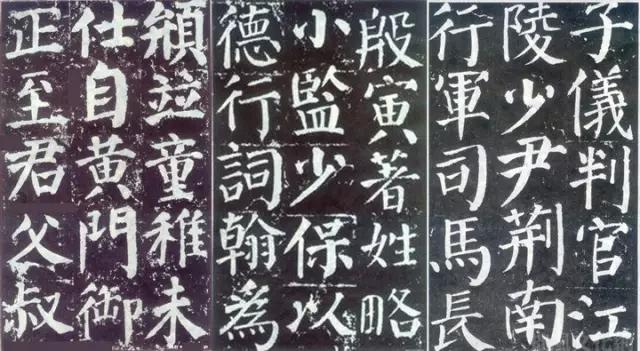 子儀判官江
陵少尹荊南
行軍司馬長
殷寅著姓略
小監少保以
德行詞翰為
並童稚未
仕自黄門御
正至君父叔